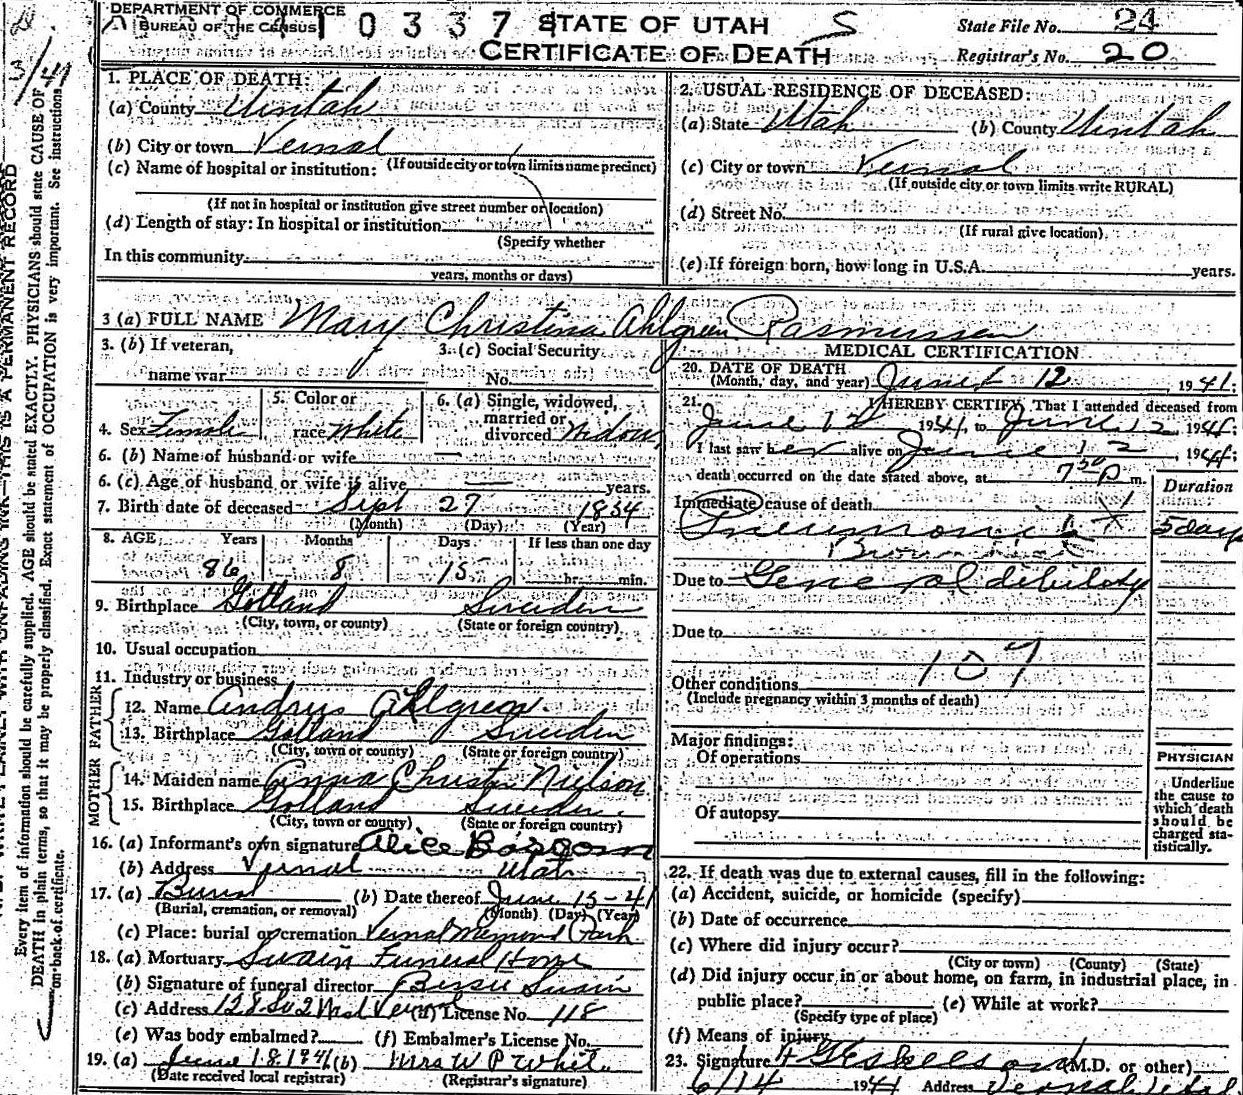 DEPARTMENT OF COMMERCE
BUREAU OF THE CENSUS
1 0 3 3 7
STATE OF UTAH
CERTIFICATE OF DEATH
S
State File No. 24
Registrar's No. 20
1. PLACE OF DEATH:
(a) County Uintah
(b) City or town Vernal
(If outside city or town limits name precinct)
(c) Name of hospital or institution:
(If not in hospital or institution give street number or location)
(d) Length of stay: In hospital or institution
(Specify whether
In this community
years, months or days)
2. USUAL RESIDENCE OF DECEASED:
(a) State Utah (b) County Uintah
(c) City or town Vernal
(If outside city or town limits write RURAL)
(d) Street No.
(If rural give location)
(e) If foreign born, how long in U.S.A. years.
3 (a) FULL NAME Mary Christina Ahlgreen Rasmussen
3. (b) If veteran,
name war
3. (c) Social Security
No.
4. Sex Female
5. Color or
race White
6. (a) Single, widowed,
married or
divorced Widow
6. (b) Name of husband or wife
6. (c) Age of husband or wife if alive years.
7. Birth date of deceased Sept 27 1854
(Month) (Day) (Year)
8. AGE Years Months Days If less than one day
86 8 15 hr. min.
9. Birthplace Gotland Sweden
(City, town, or county) (State or foreign country)
10. Usual occupation
11. Industry or business
FATHER
12. Name Andrus Ahlgreen
13. Birthplace Gotland Sweden
(City, town or county) (State or foreign country)
MOTHER
14. Maiden name Anna Christa Nielson
15. Birthplace Gotland Sweden
(City, town or county) (State or foreign country)
16. (a) Informant's own signature Alice Bascom
(b) Address Vernal Utah
17. (a) Burial (b) Date thereof June 15-41
(Burial, cremation, or removal) (Month) (Day) (Year)
(c) Place: burial or cremation Vernal Memorial Park
18. (a) Mortuary Swain Funeral Home
(b) Signature of funeral director Bessie Swain
(c) Address 128 So 2 West Vernal (d) License No. 118
(e) Was body embalmed? (f) Embalmer's License No.
19. (a) June 18 1941 (b) Mrs W P White
(Date received local registrar) (Registrar's signature)
MEDICAL CERTIFICATION
20. DATE OF DEATH
(Month, day, and year) June 12, 1941
21. I HEREBY CERTIFY, That I attended deceased from
June 12 1941, to June 12, 1941;
I last saw her alive on June 12 1941;
death occurred on the date stated above, at 7 30 P m.
Duration
Immediate cause of death
Pneumonia 5 days
Due to General debility
Due to
107
Other conditions
(Include pregnancy within 3 months of death)
Major findings:
Of operations
Of autopsy
PHYSICIAN
Underline
the cause to
which death
should be
charged sta-
tistically.
22. If death was due to external causes, fill in the following:
(a) Accident, suicide, or homicide (specify)
(b) Date of occurrence
(c) Where did injury occur?
(City or town) (County) (State)
(d) Did injury occur in or about home, on farm, in industrial place, in
public place? (e) While at work?
(Specify type of place)
(f) Means of injury
23. Signature (M.D. or other)
6/14 1941 Address Vernal Utah
THIS IS A PERMANENT RECORD
Every item of information should be carefully supplied. AGE should be stated EXACTLY. PHYSICIANS should state CAUSE OF
DEATH in plain terms, so that it may be properly classified. Exact statement of OCCUPATION is very important. See instructions
on back of certificate.